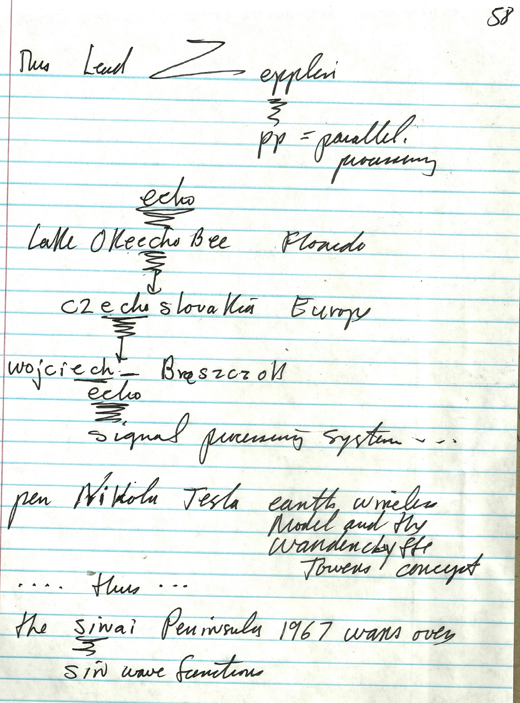 58
This Lead Z eppelin
pp = parallel.
processing
echo
Lake OKeecho Bee Florida
CZechoslovakia Europe
wojciech - Brąszczok
echo
signal processing system - - ..
per Nikola Tesla earth wireless
Model and the
Wardenclyffe
Towers concept
.... thus ...
the sinai Peninsula 1967 wars over
sin wave functions